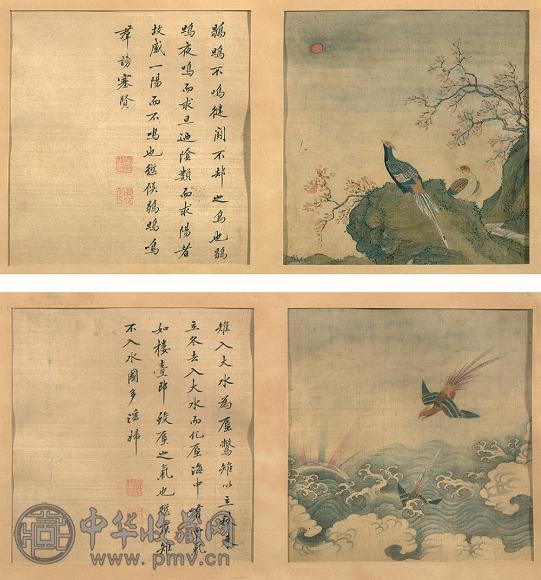 鶡鴠不鳴健鬭不却之鳥也鶡
鴠夜鳴而求旦迺陰類而求陽者
故感一陽而不鳴也繼候鶡鴠鳴
群塞賢
雉入大水為蜃鷩雉以立秋來
立冬去入大水而化蜃海中氣
如樓臺即蜃之氣也
不入水國多淫婦
中华收藏网
www.pmv.cn